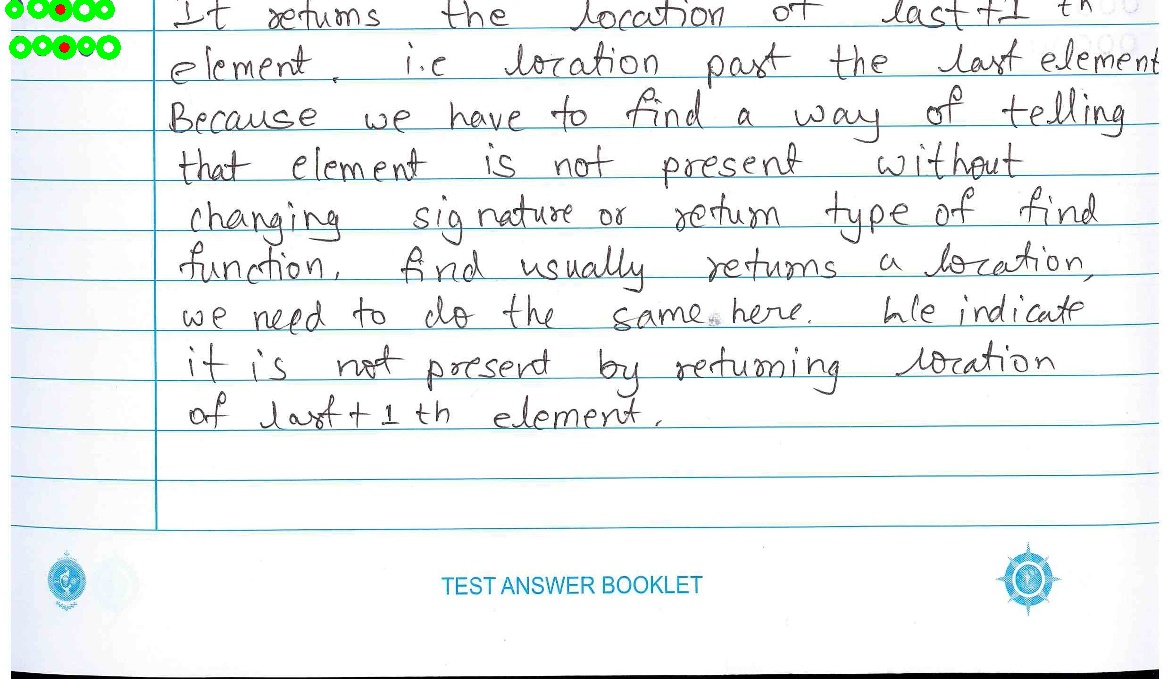 It returns the location of last+1 th
element. i.e location past the last element
Because we have to find a way of telling
that element is not present without
changing signature or return type of find
function, find usually returns a location,
we need to do the same here. We indicate
it is not present by returning location
of last+1 th element.
TEST ANSWER BOOKLET